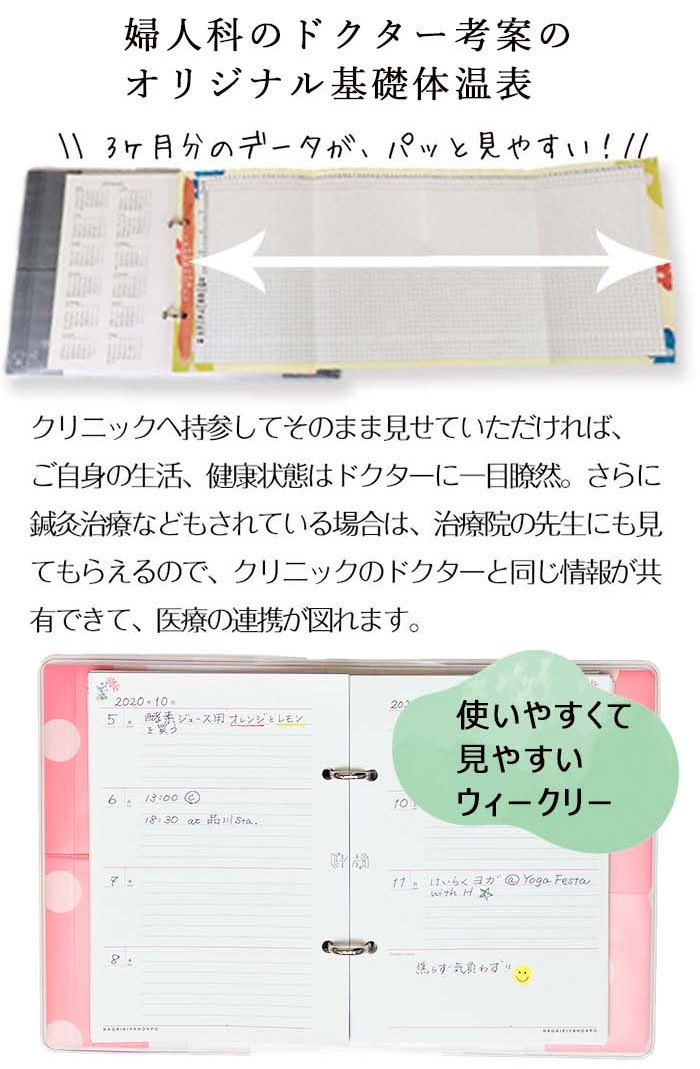 婦人科のドクター考案の
オリジナル基礎体温表
\\ 3ヶ月分のデータが、パッと見やすい！//
クリニックへ持参してそのまま見せていただければ、
ご自身の生活、健康状態はドクターに一目瞭然。さらに
鍼灸治療などもされている場合は、治療院の先生にも見
てもらえるので、クリニックのドクターと同じ情報が共
有できて、医療の連携が図れます。
使いやすくて
見やすい
ウィークリー
2020年10月
5 月 酵素ジュース用オレンジとレモン
を買う
6 火 13:00 Ⓒ
18:30 at 品川Sta.
7
8 木
NAGAIKIYAHONPO
202
10
11 日 けいらくヨガ @Yoga Festa
with H
焦らず気負わず!!
NAGAIKIYAHONPO